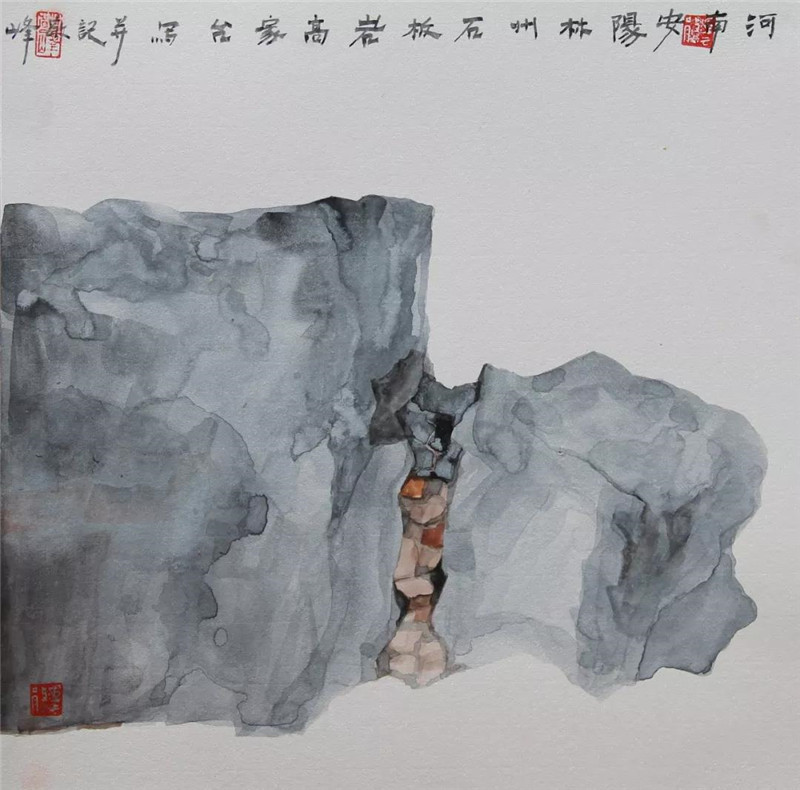 河南安陽林州石板岩高家台写并記峰